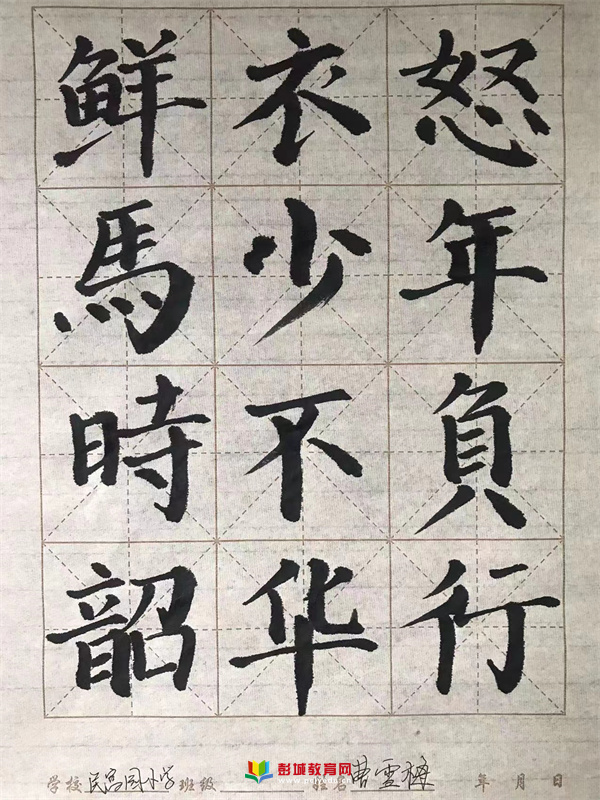 鮮衣怒
馬少年
時不負
韶华行
学校 民富园小学 班级 姓名 曹雪梅 年 月 日
彭城教育网